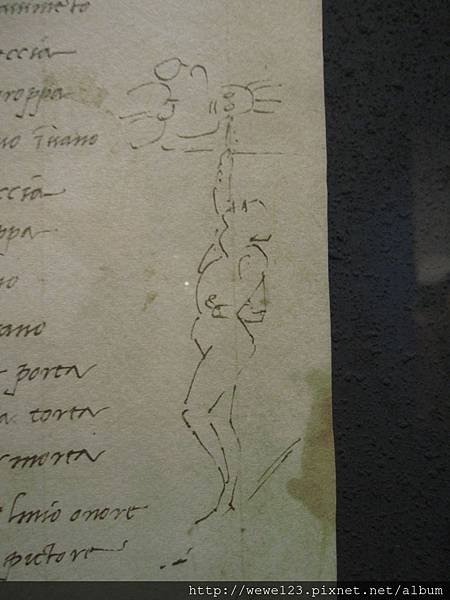 avimeto
eccia
roppa
uo Iuano
ccia
ppa
no
ano
porta
a torta
morta
l mio onore
pictore
http://wewe123.pixnet.net/album